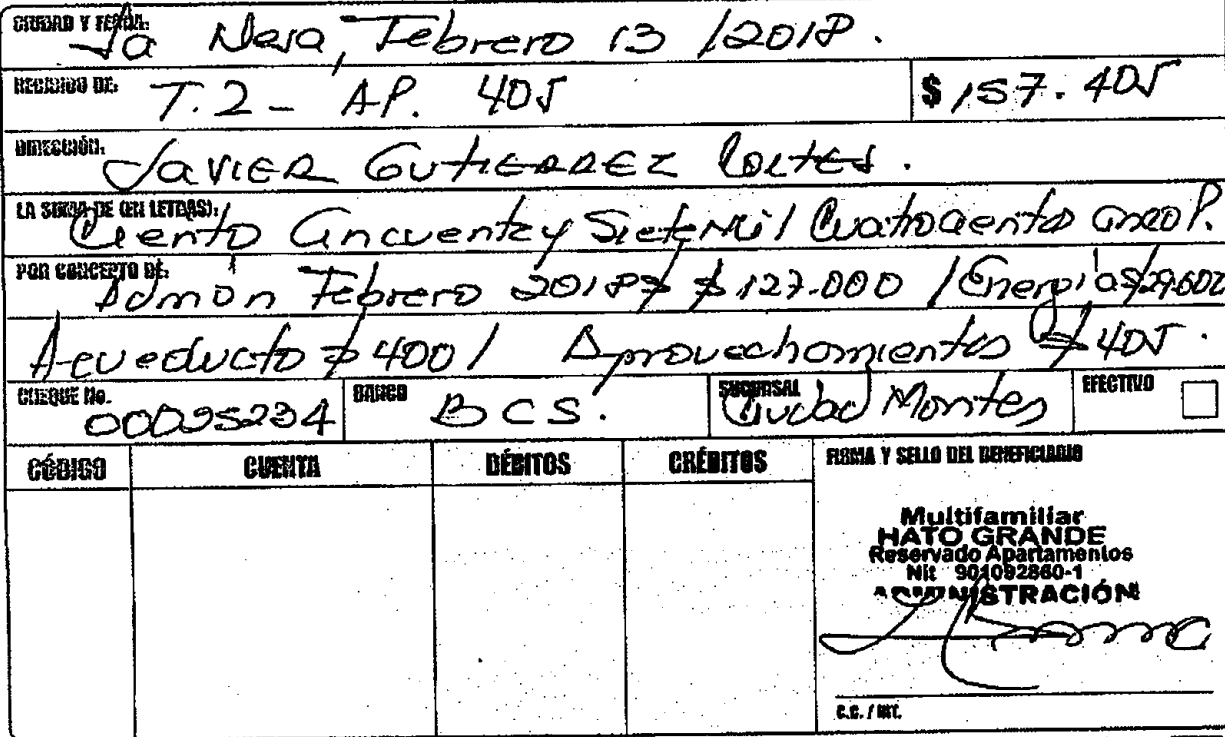 CIUDAD Y FECHA: La Mesa, Febrero 13 /2018.
RECIBIDO DE: T.2 - AP. 405 $ 157.405
DIRECCIÓN: Javier Gutierrez Cortes.
LA SUMA DE (EN LETRAS): Ciento Cincuenta y Siete Mil Cuatrocientos Cinco P.
POR CONCEPTO DE: Admon Febrero 2018 $ 127.000 / Energia $ 29.600
Acueducto $ 400 / Aprovechamientos $ 405.
CHEQUE No. 00095234 BANCO BCS. SUCURSAL Ciudad Montes EFECTIVO
CÓDIGO CUENTA DÉBITOS CRÉDITOS FIRMA Y SELLO DEL BENEFICIARIO
Multifamiliar
HATO GRANDE
Reservado Apartamentos
Nit 901092860-1
ADMINISTRACIÓN
C.C. / NIT.